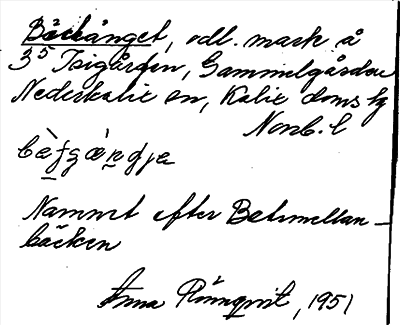 Bäckänget, odl. mark å
3⁵ Isigården, Gammelgården
Nederkalix sn, Kalix doms hg
Norrb. l
Namnet efter Betsmellan-
bäcken
Anna Rönnqvist, 1951